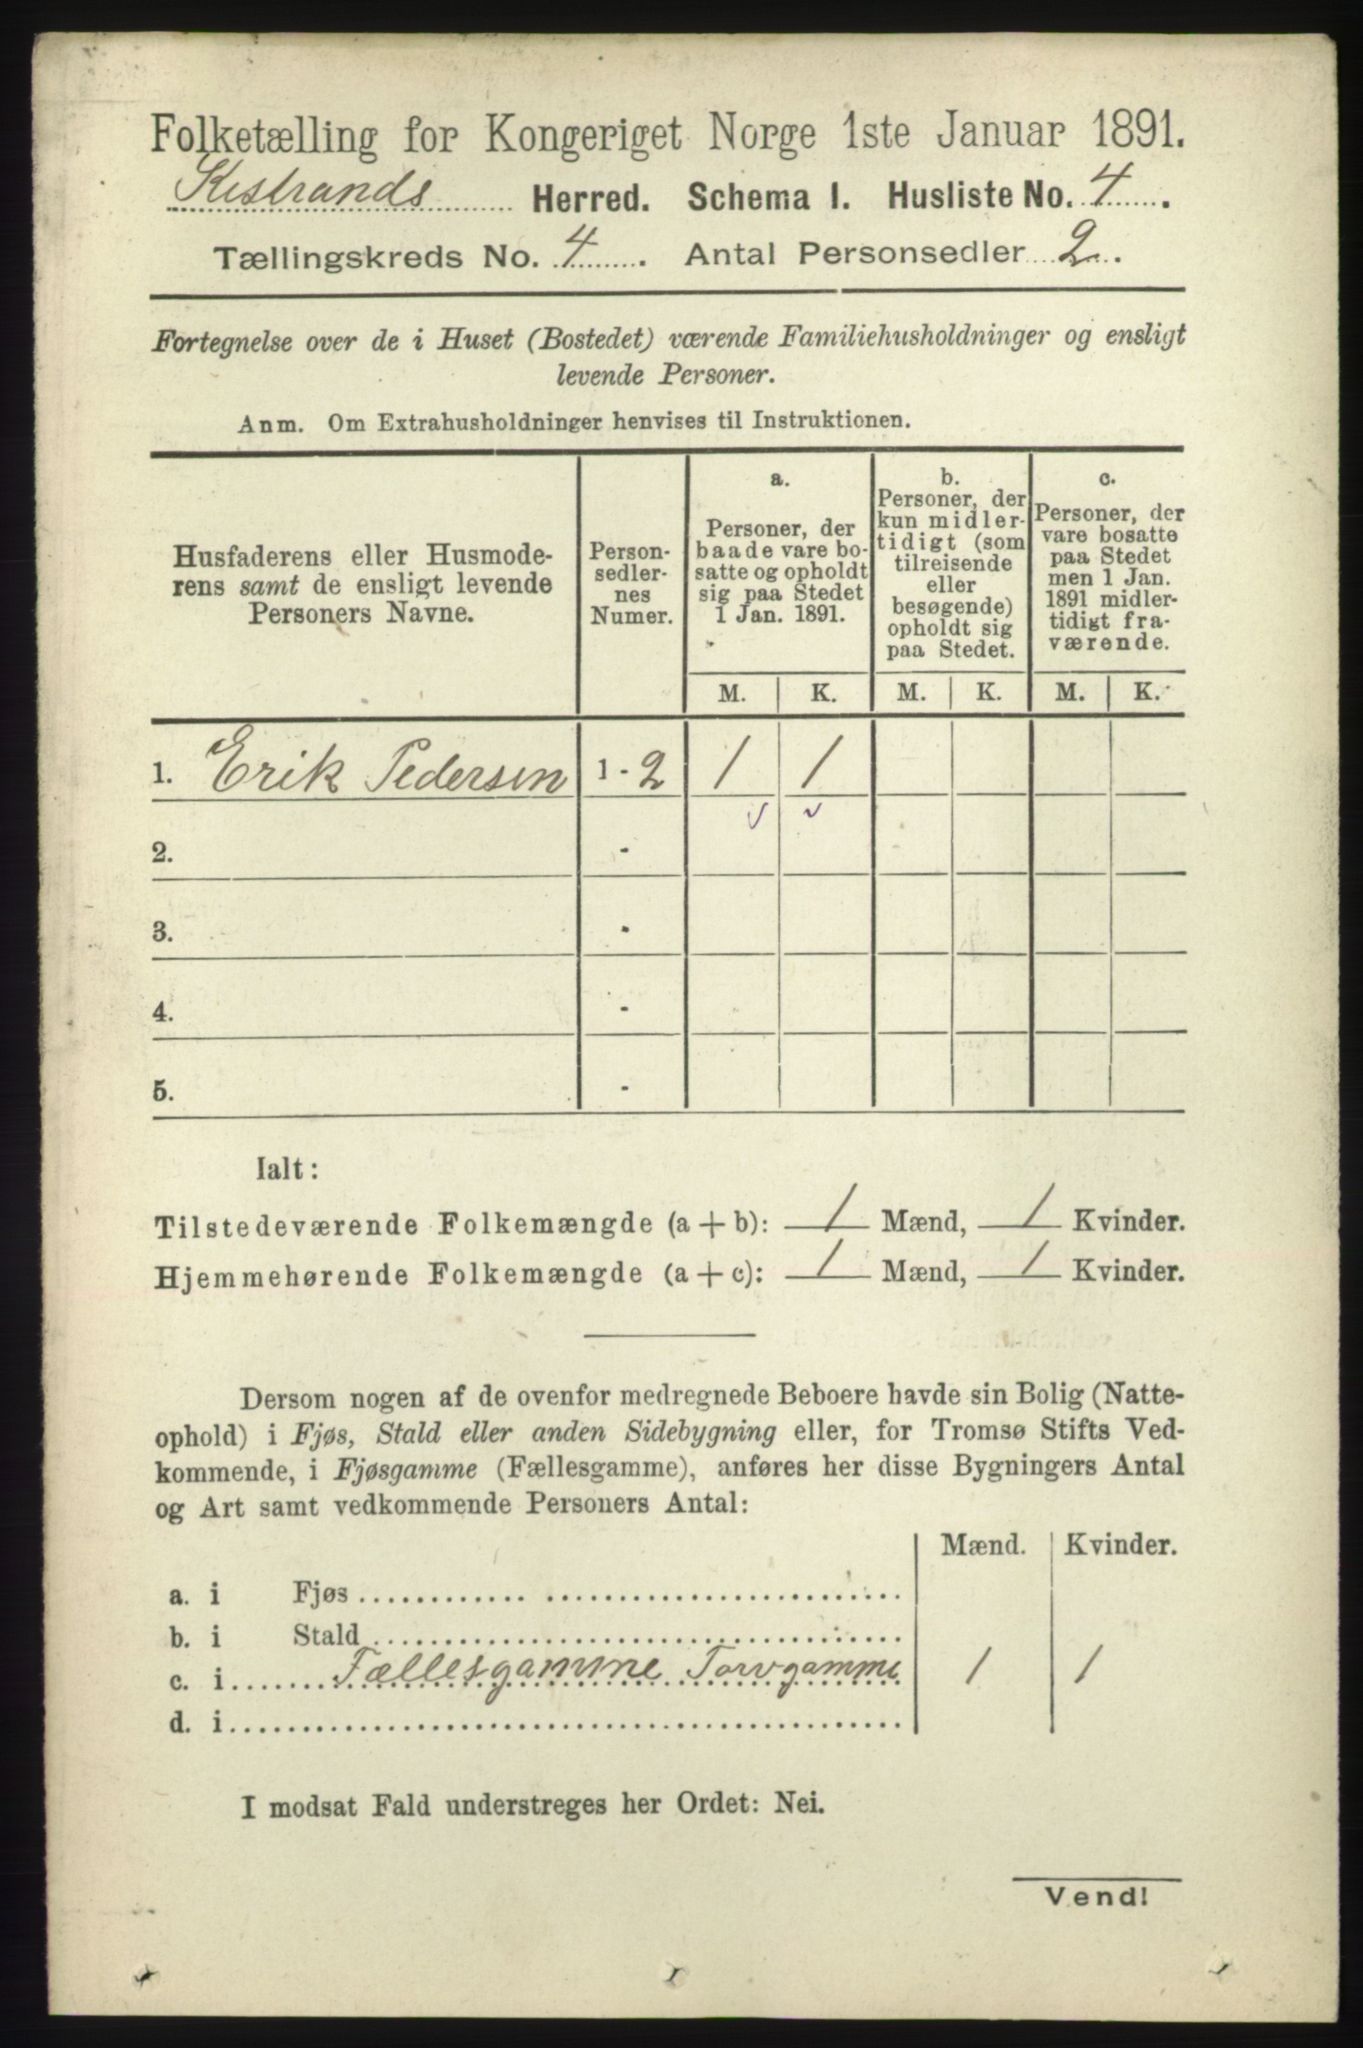 Folketælling for Kongeriget Norge 1ste Januar 1891.
Kistrands Herred. Schema 1. Husliste No. 4.
Tællingskreds No. 4. Antal Personsedler 2.
Fortegnelse over de i Huset (Bostedet) værende Familiehusholdninger og ensligt
levende Personer.
Anm. Om Extrahusholdninger henvises til Instruktionen.
Husfaderens eller Husmode-
rens samt de ensligt levende
Personers Navne.
Person-
sedler-
nes
Numer.
a.
Personer, der
baade vare bo-
satte og opholdt
sig paa Stedet
1 Jan. 1891.
b.
Personer, der
kun midler-
tidigt (som
tilreisende
eller
besøgende)
opholdt sig
paa Stedet.
c.
Personer, der
vare bosatte
paa Stedet
men 1 Jan.
1891 midler-
tidigt fra-
værende.
M. K. M. K. M. K.
1. Erik Pedersen 1 - 2 1 1
2. -
3. -
4. -
5. -
Ialt:
Tilstedeværende Folkemængde (a + b): 1 Mænd, 1 Kvinder.
Hjemmehørende Folkemængde (a + c): 1 Mænd, 1 Kvinder.
Dersom nogen af de ovenfor medregnede Beboere havde sin Bolig (Natte-
ophold) i Fjøs, Stald eller anden Sidebygning eller, for Tromsø Stifts Ved-
kommende, i Fjøsgamme (Fællesgamme), anføres her disse Bygningers Antal
og Art samt vedkommende Personers Antal:
Mænd. Kvinder.
a. i Fjøs
b. i Stald
c. i Fællesgamme Torvgamme 1 1
d. i
I modsat Fald understreges her Ordet: Nei.
Vend!